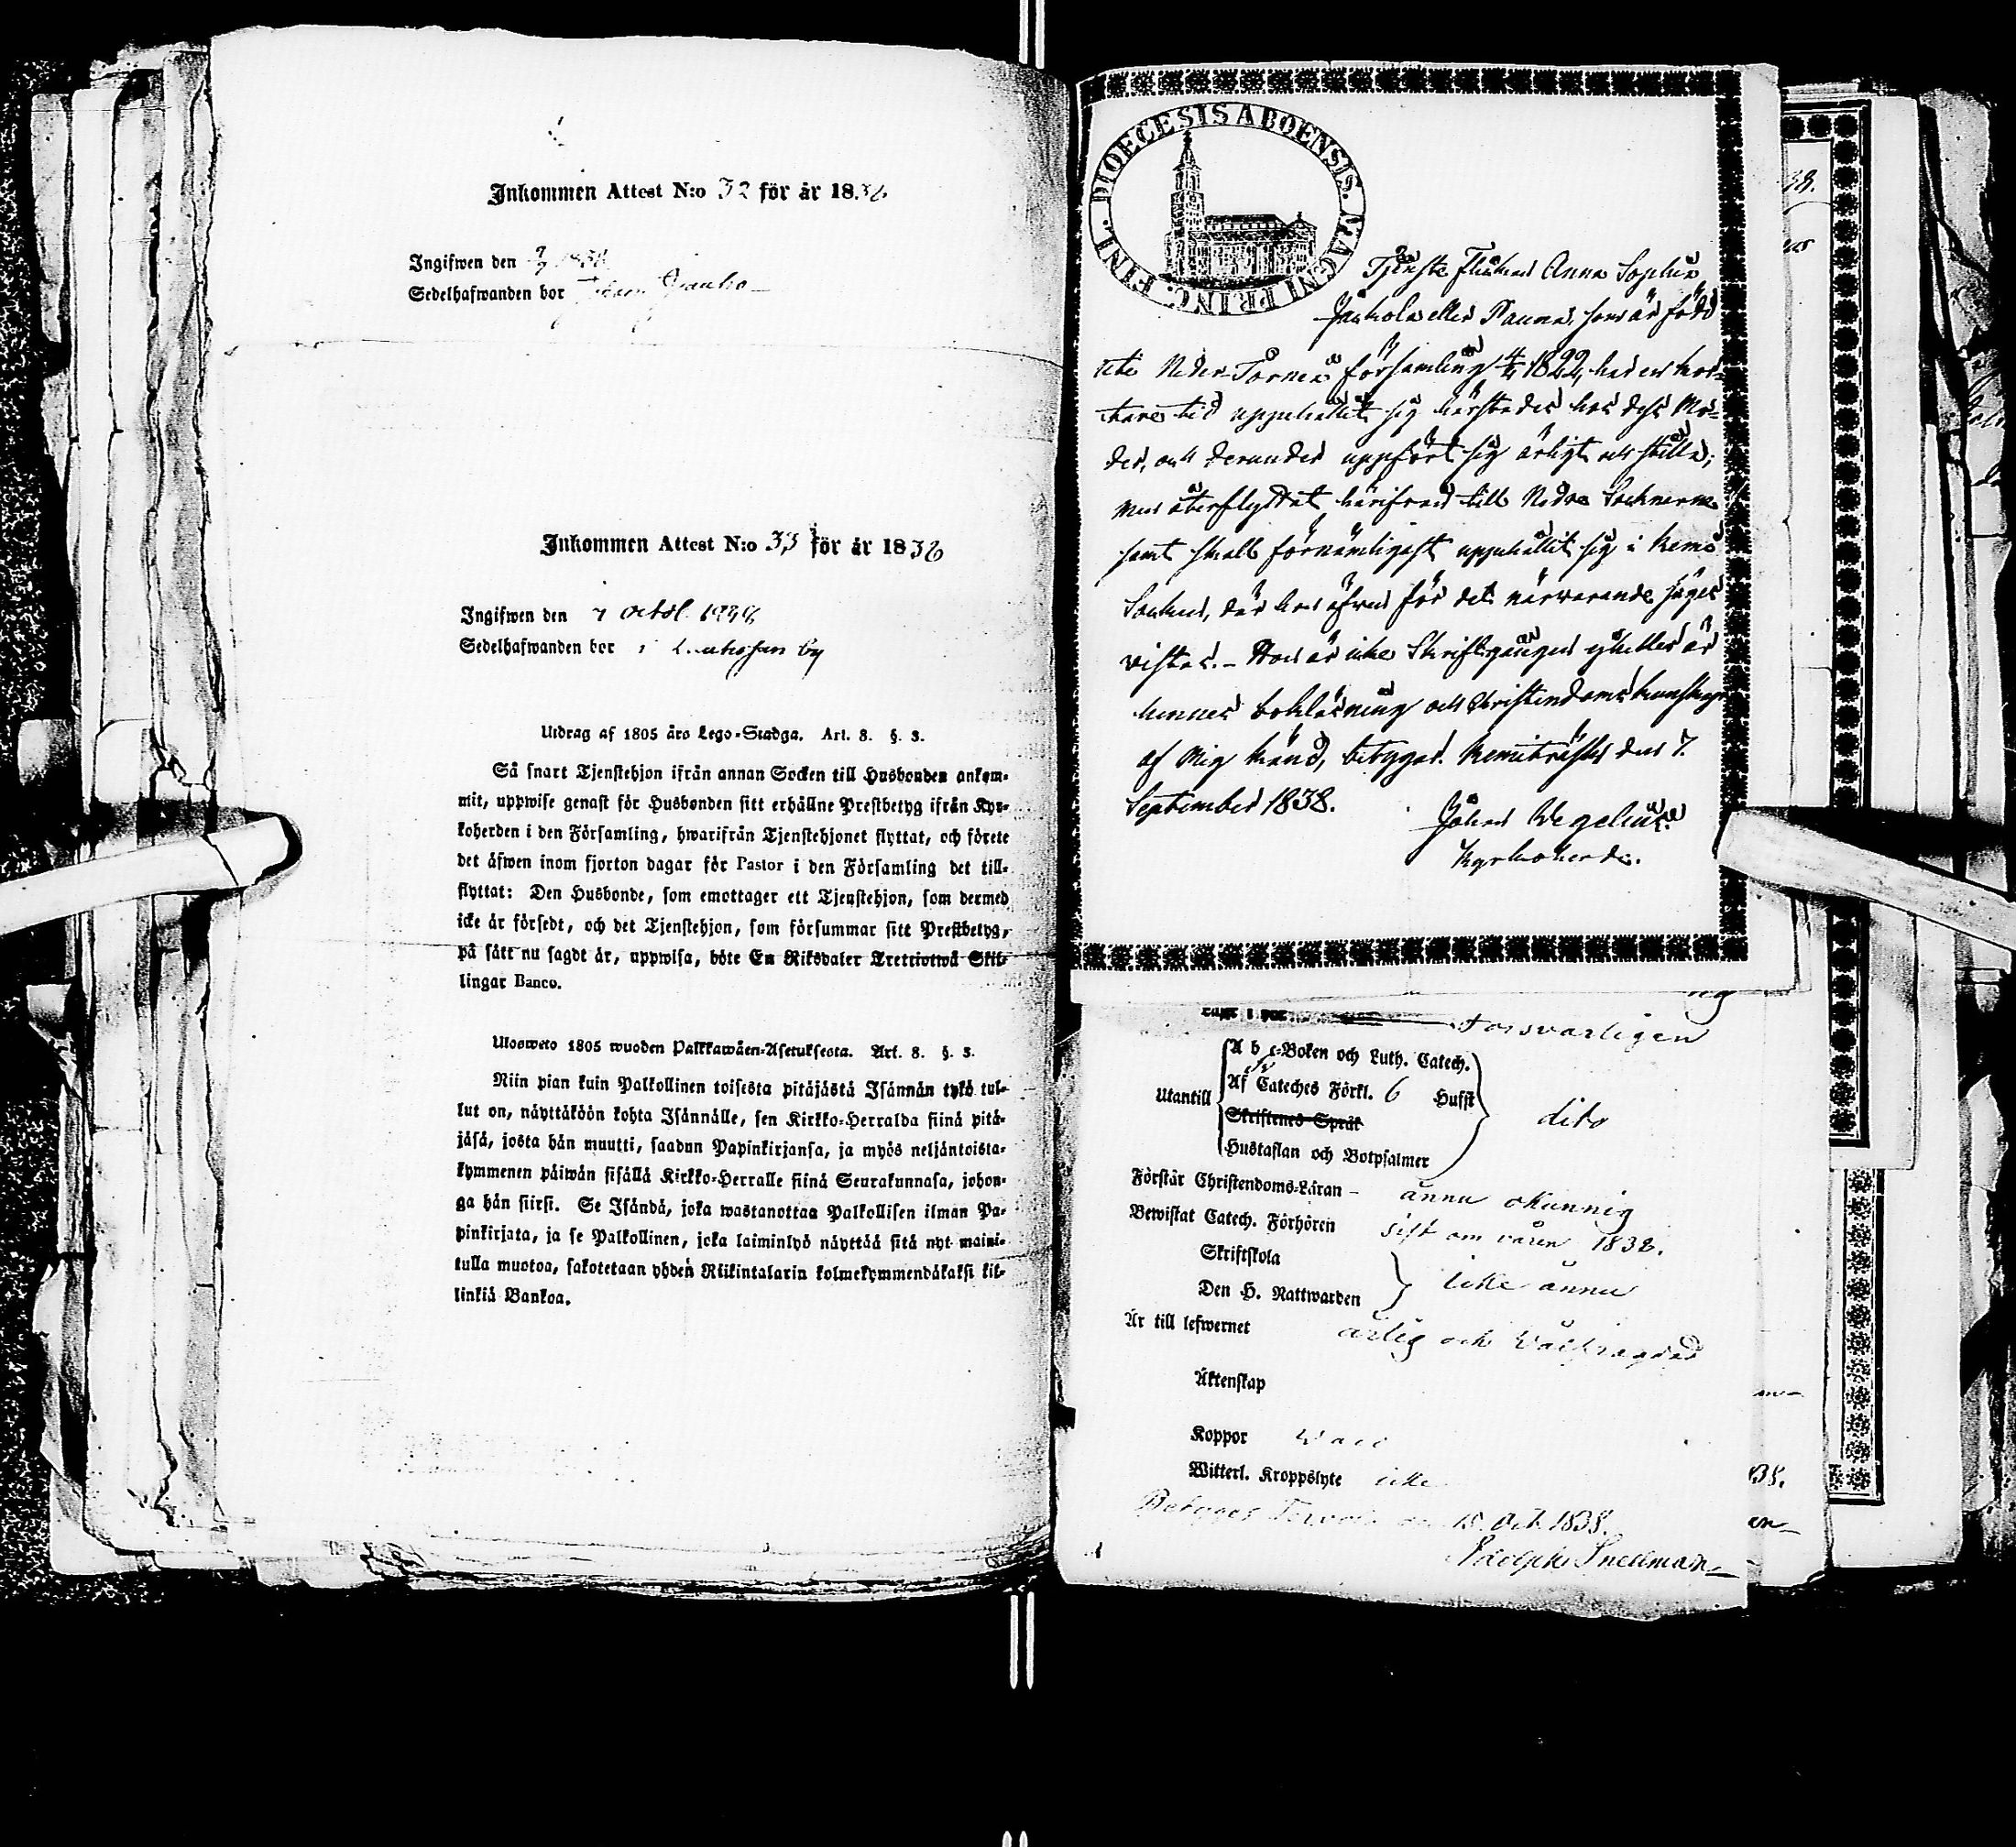 Inkommen Attest N:o 32 för år 1838
Ingifwen den 1838
Sedelhafwanden bor
Inkommen Attest N:o 33 för år 1838
Ingifwen den 7 octob. 1838
Sedelhafwanden bor i by
Utdrag af 1805 års Lego-Stadga. Art. 8. §. 3.
Så snart Tjenstehjon ifrån annan Socken till Husbonden ankom-
mit, uppwise genast för Husbonden sitt erhållne Prestbetyg ifrån Kyr-
koherden i den Församling, hwarifrån Tjenstehjonet flyttat, och förete
det äfwen inom fjorton dagar för Pastor i den Församling det till-
flyttat: Den Husbonde, som emottager ett Tjenstehjon, som dermed
icke är försedt, och det Tjenstehjon, som försummar sitt Prestbetyg,
på sätt nu sagdt är, uppwisa, böte En Riksdaler Trettiotwå Skil-
lingar Banco.
Ulosweto 1805 wuoden Palkkawäen-Asetuksesta. Art. 8. §. 3.
Niin pian kuin Palkollinen toisesta pitäjästä Isännän tykö tul-
lut on, näyttäköön kohta Isännälle, sen Kirkko-Herralda siinä pitä-
jäsä, josta hän muutti, saadun Papinkirjansa, ja myös neljäntoista-
kymmenen päiwän sisällä Kirkko-Herralle siinä Seurakunnasa, johon-
ga hän siirsi. Se Isändä, joka wastanottaa Palkollisen ilman Pa-
pinkirjata, ja se Palkollinen, joka laiminlyö näyttää sitä nyt maini-
tulla muotoa, sakotetaan yhden Riikintalarin kolmekymmendäkaksi kil-
linkiä Bankoa.
DIOECESIS ABOENSIS. MAGNI PRINC. FINL.
Tjenste Flickan Anna Sophia
Jankola eller Rauma, som är född
uti Neder-Torneå församling 4/4 1822, har en kor-
tare tid uppehållit sig härstädes hos dess Mo-
der, och derunder uppfört sig ärligt och stilla;
men återflyttat härifrån till Nedre Socknerne
samt skall förnämligast uppehållit sig i Kemi
Socken, där hon äfven för det närvarande säges
vistas. - Hon är icke Skriftgången ej heller är
hennes bokläsning och Christendoms kunskap
af Mig känd, betygar. Kemiträsk den 7.
September 1838.
Johan Wegelius
Kyrkoherde.
försvarligen
Utantill
A b c-Boken och Luth. Catech.
Af Cateches Förkl. 6 Hufst
Skriftenes Språk
Hustaflan och Botpsalmer
dito
Förstår Christendoms-Läran - ännu okunnig
Bewistat Catech. Förhören sist om våren 1838.
Skriftskola
Den H. Nattwarden
icke ännu
Är till lefwernet ärlig och välfrägdad
Äktenskap
Koppor
Witterl. Kroppslyte icke
Betygas Tervola 15. Oct. 1838.
Adolph Snellman